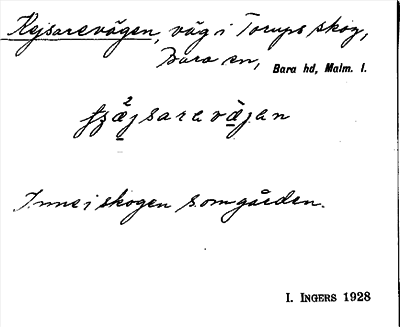 Kejsarevägen, väg i Torups skog,
Bara sn, Bara hd, Malm. l.
Inne i skogen som gården.
I. INGERS 1928